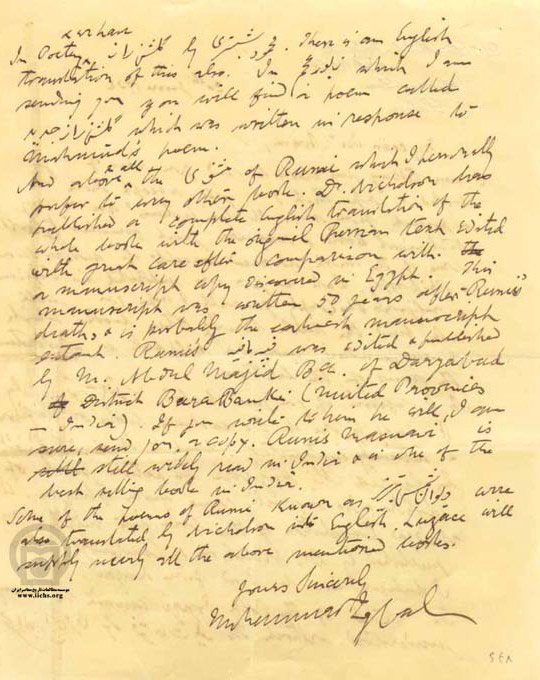 In Poetry, گلشن راز by محمود شبستری. There is an English
translation of this also. In زبور عجم which I am
sending you you will find a poem called
گلشن راز جدید which was written in response to
Mahmud's poem.
And above all the مثنوی of Rumi which I personally
prefer to any other book. Dr. Nicholson has
published a complete English translation of the
whole book with the original Persian text edited
with great care after comparison with the
a manuscript copy discovered in Egypt. This
manuscript was written 50 years after Rumi's
death, & is probably the earliest manuscript
extant. Rumi's فیه ما فیه was edited & published
by M. Abdul Majid B.A. of Daryabad
District Bara Banki (United Provinces
— India). If you write to him he will, I am
sure, send you a copy. Rumi's Masnawi is
still widely read in India & is one of the
best selling books in India.
Some of the poems of Rumi known as دیوان شمس تبریز were
also translated by Nicholson into English. Luzac will
supply nearly all the above mentioned books.
Yours Sincerely
Muhammad Iqbal
موسسه مطالعات تاریخ معاصر ایران
www.iichs.org